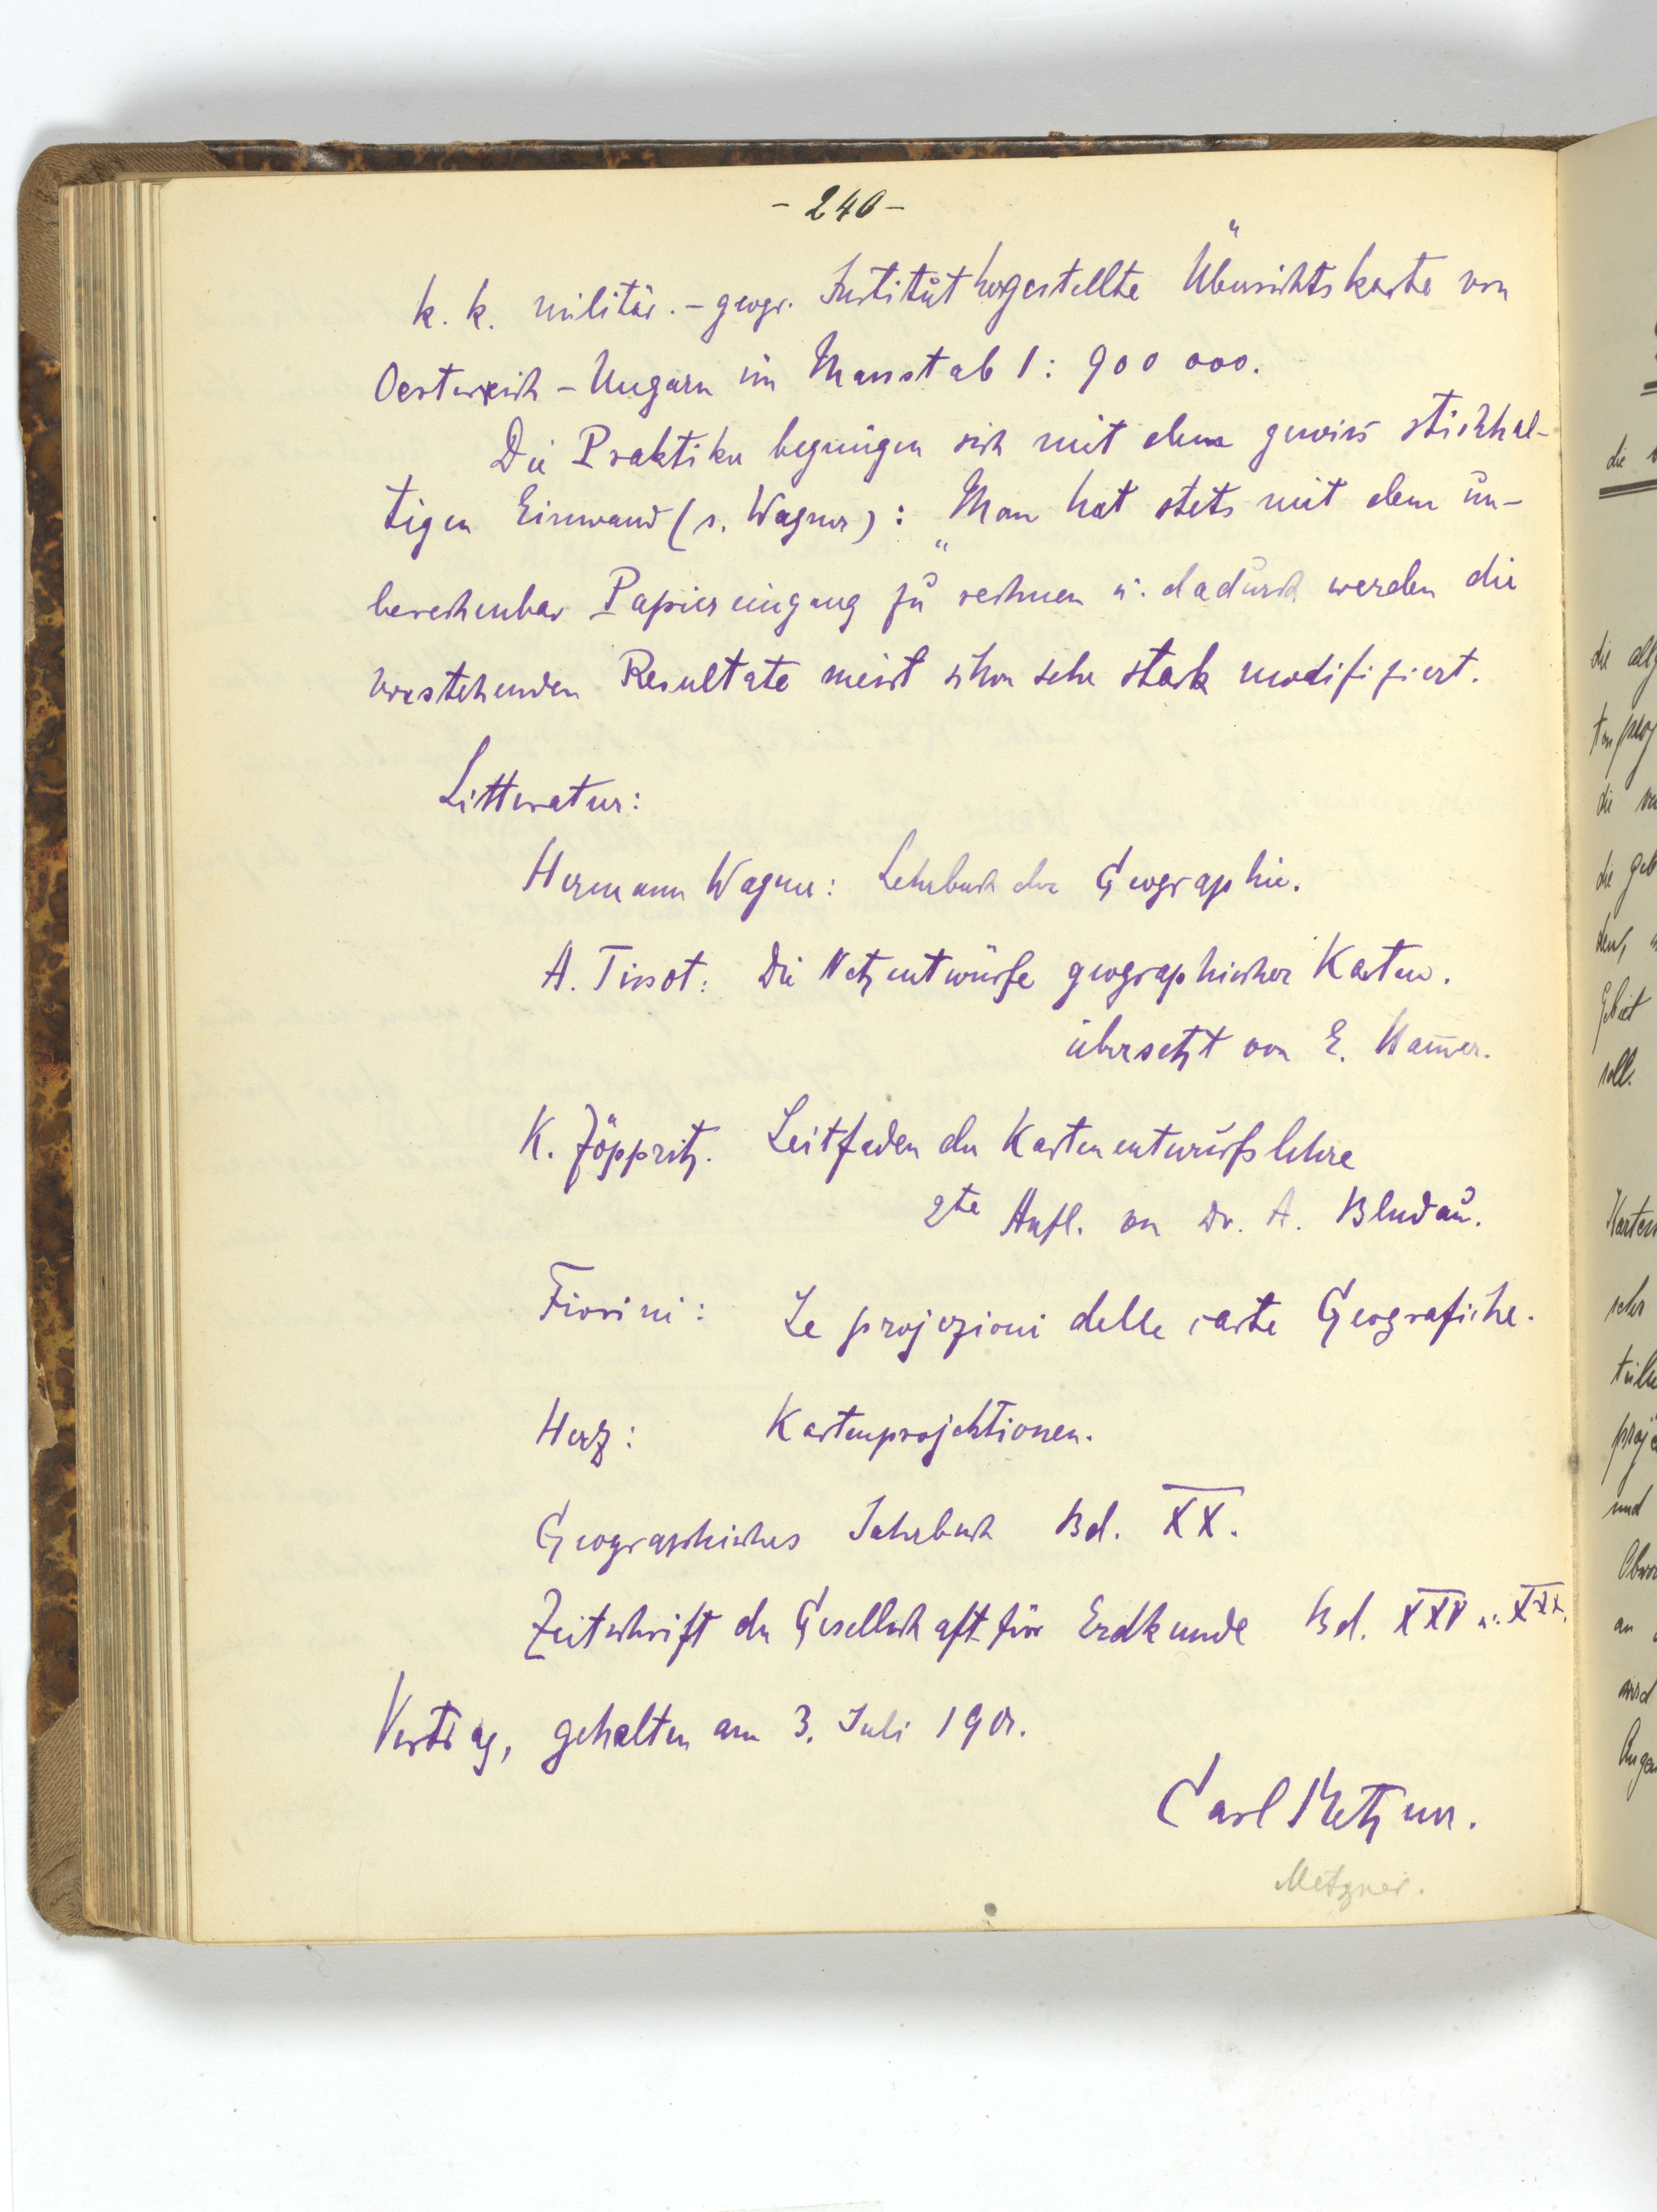 - 240 -
k. k. militär.-geogr. Institut hergestellte Übersichtskarte von
Oesterreich-Ungarn im Massstab 1: 900 000.
Die Praktiker begnügen sich mit dem gewiss stichhal-
tigen Einwand (s. Wagner): „Man hat stets mit dem un-
berechenbar Papiereingang zu rechnen u. dadurch werden die
vorstehenden Resultate meist schon sehr stark modifiziert.
Litteratur:
Hermann Wagner: Lehrbuch der Geographie.
A. Tissot: Die Netzentwürfe geographischer Karten.
übersetzt von E. Ham̅er.
K. Zöppritz. Leitfaden der Kartenentwurfslehre
2te Aufl. von Dr. A. Bludau.
Fiorini: Le projezioni delle carte Geografiche.
Herz: Kartenprojektionen.
Geographisches Jahrbuch Bd. XX.
Zeitschrift der Gesellschaft für Erdkunde Bd. XXV u. XXX.
Vortrag, gehalten am 3. Juli
Carl Metzner.
Metzner.
die
die allg
die
die geb
Gebiet
soll.
Karten
sehr
und
an
wird